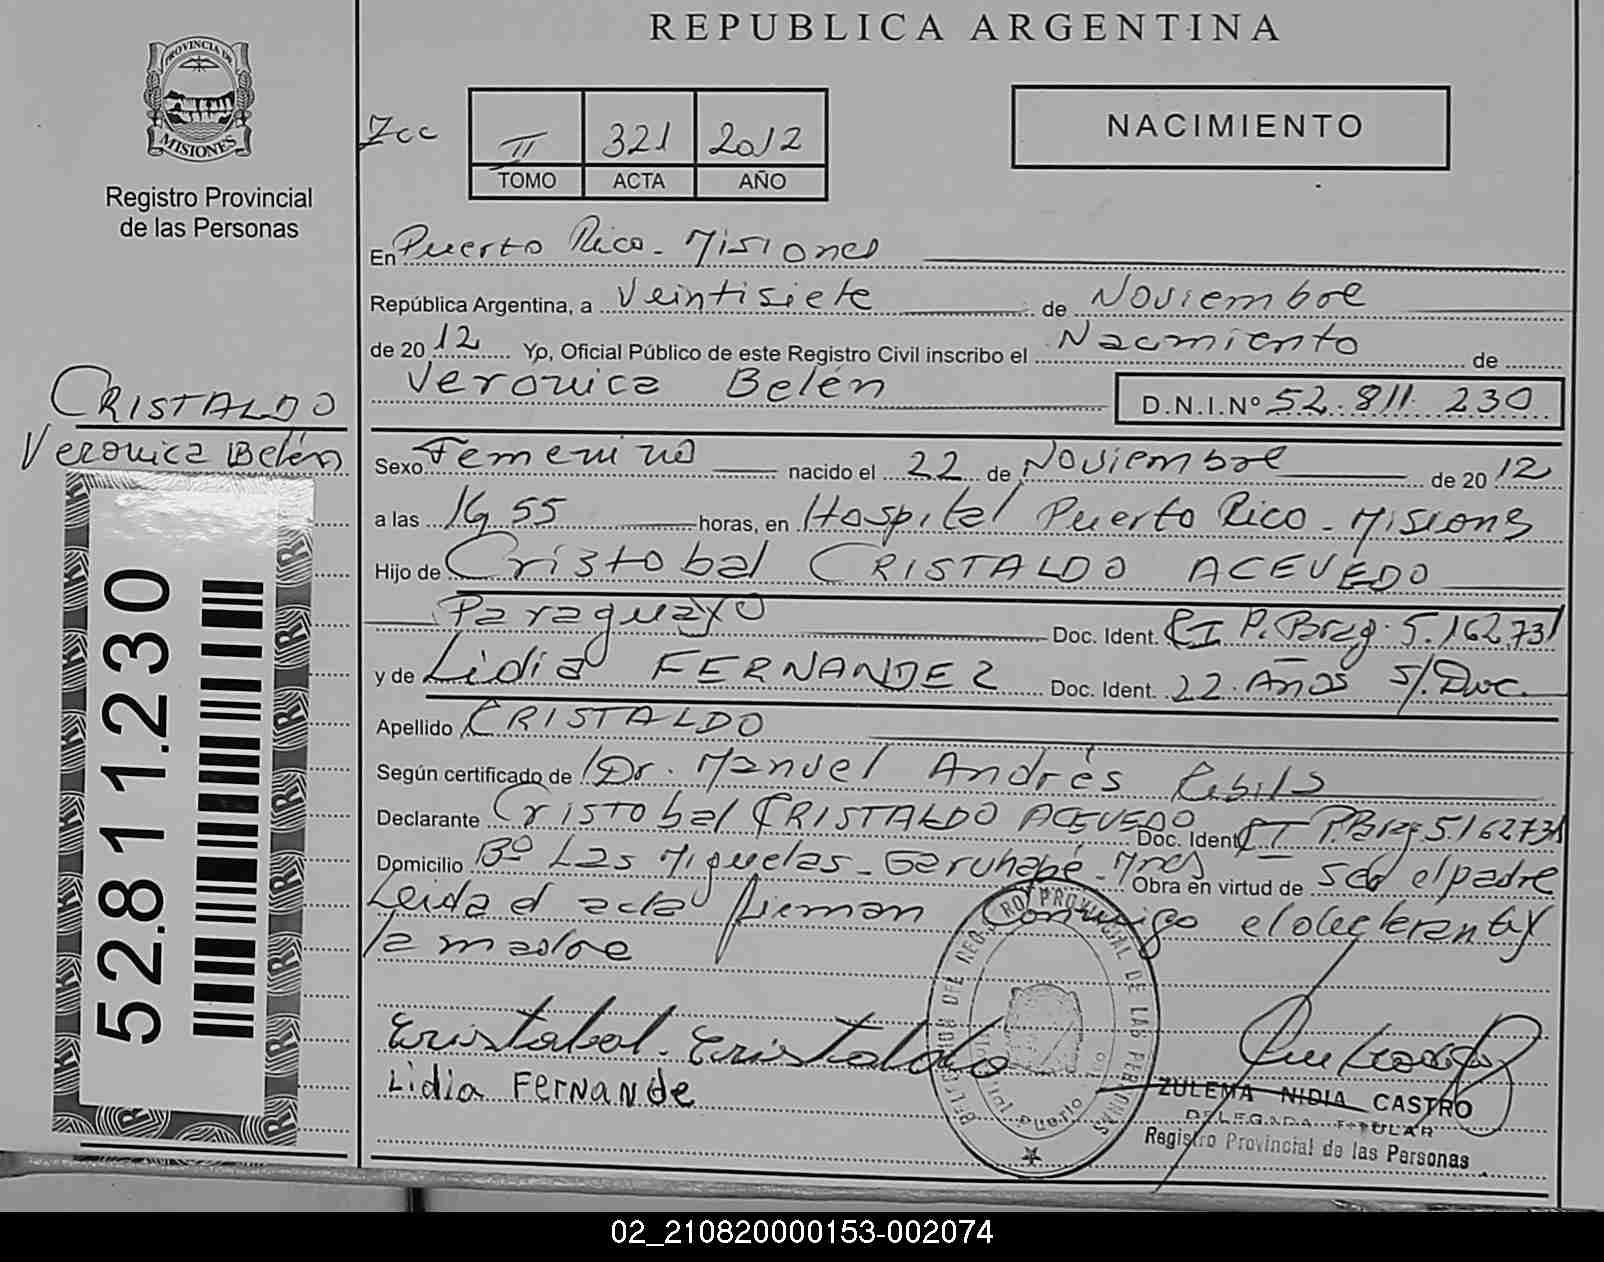 REPUBLICA ARGENTINA
PROVINCIA DE
MISIONES
Registro Provincial
de las Personas
II 321 2012
TOMO ACTA AÑO
NACIMIENTO
En Puerto Rico - Misiones
República Argentina, a Veintisiete de Noviembre
de 2012 Yo, Oficial Público de este Registro Civil inscribo el Nacimiento de
Verónica Belén D.N.I.Nº 52.811.230
CRISTALDO
Verónica Belén
Sexo Femenino nacido el 22 de Noviembre de 2012
a las 16,55 horas, en Hospital Puerto Rico - Misiones
Hijo de Cristobal CRISTALDO ACEVEDO
Paraguayo Doc. Ident. CI P. Brag. 5.162.731
y de Lidia FERNANDEZ Doc. Ident. 22 Años s/Doc.
Apellido CRISTALDO
Según certificado de Dr. Manuel Andrés
Declarante Cristobal CRISTALDO ACEVEDO Doc. Ident. CI P. Brag. 5.162.731
Domicilio Bº Las Miguelas - Garuhapé - Mnes Obra en virtud de ser el padre
Leida el acta firman conmigo el declarante y
la madre
52.811.230
Cristobal. Cristaldo
Lidia Fernande
REG. PROVINCIAL DE LAS PERSONAS
ZULEMA NIDIA CASTRO
DELEGADA TITULAR
Registro Provincial de las Personas
02_210820000153-002074